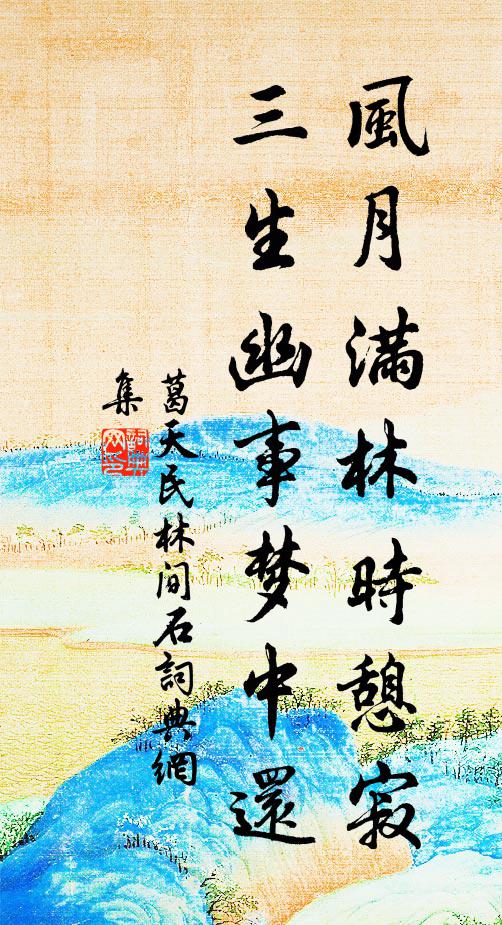 風月满林時憩寂
三生幽事梦中還
葛天民林间石詞典網
集